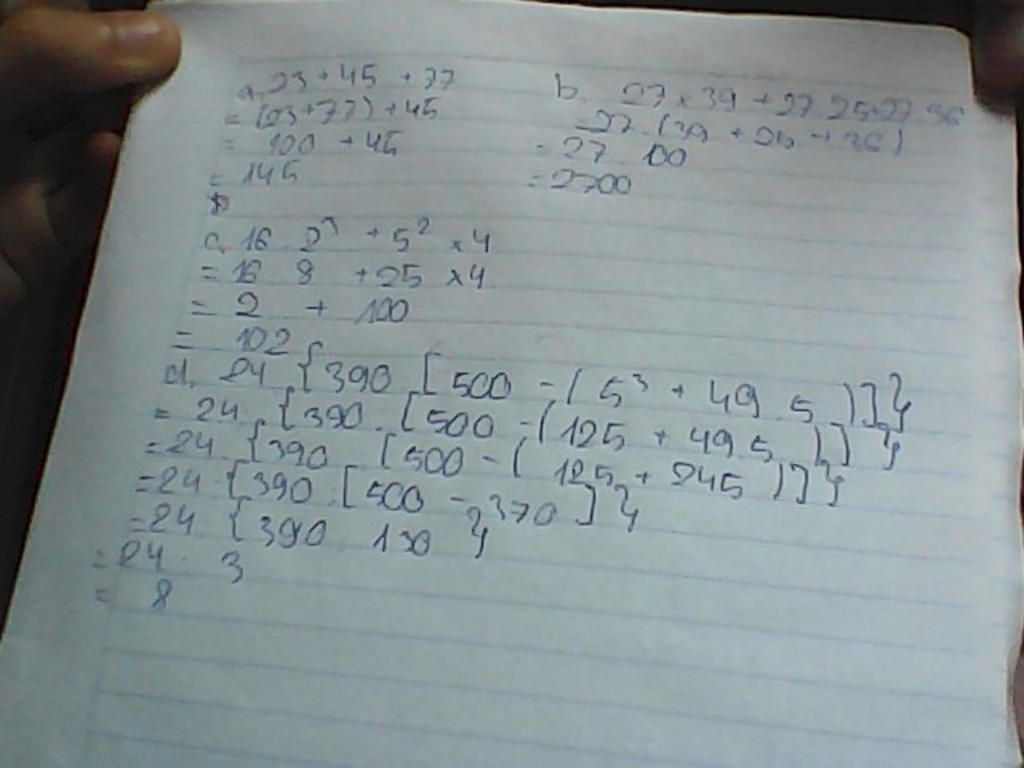 a. 23 + 45 + 77
= (23+77) + 45
= 100 + 45
= 145
b. 27 × 39 + 27 25+27 36
= 27 (39 + 25 + 36)
= 27 100
= 2700
c. 16 2³ + 5² × 4
= 16 8 + 25 × 4
= 2 + 100
= 102
d. 24 {390 [500 - (5³ + 49 5)]}
= 24 {390 [500 - (125 + 49 5)]}
= 24 {390 [500 - (125 + 245)]}
= 24 {390 [500 - 370]}
= 24 {390 130}
= 24 3
= 8